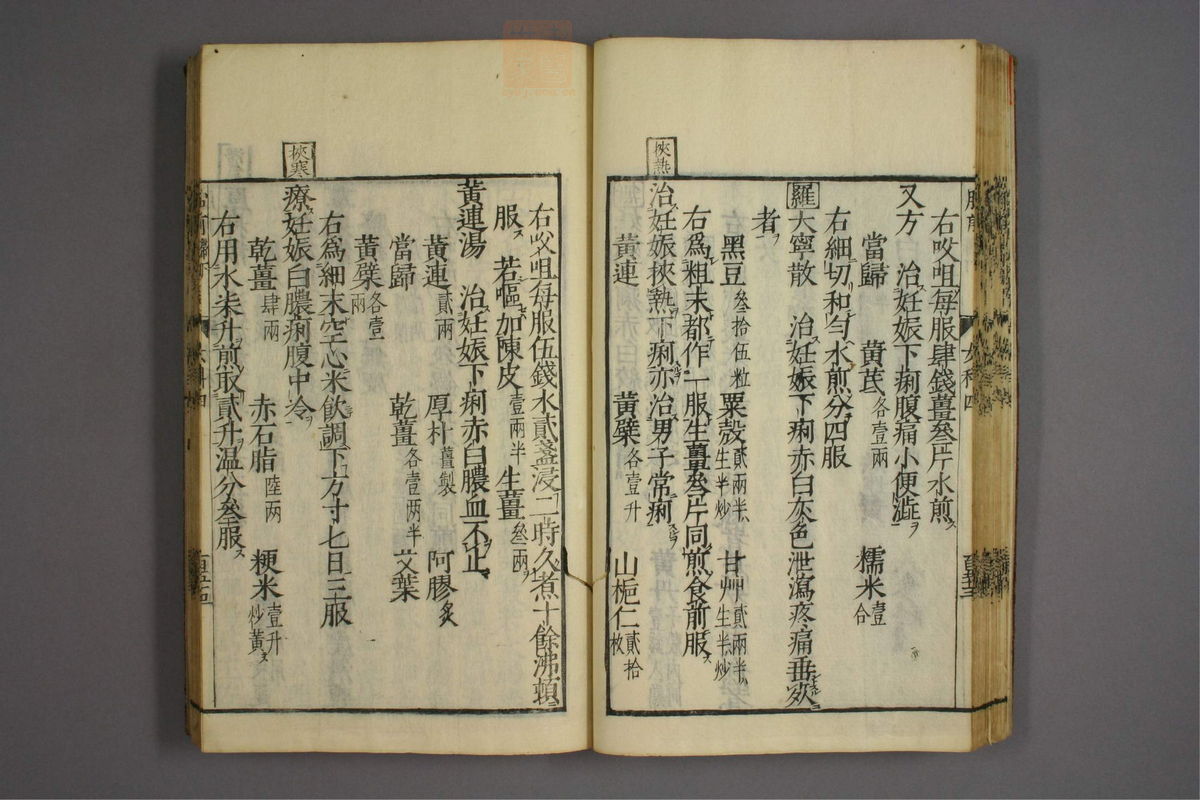 右㕮咀每服肆錢薑叄片水煎ス
又方 治妊娠下痢腹痛小便澁ヲ
當歸 黃芪各壹兩 糯米壹合
右細切和勻水煎分四服
羅 大寧散 治妊娠下痢赤白灰色泄瀉疼痛垂死
者ヲ
黑豆叄拾伍粒 粟殼貳兩半半生半炒 甘艸貳兩半半生半炒
右爲粗末都作一服生薑叄片同煎食前服ス
挾熱
治妊娠挾熱下痢亦治男子常痢
黃連 黃蘗各壹升 山梔仁貳拾枚
右㕮咀每服伍錢水貳盞浸二時久煮十餘沸頓
服ス 若嘔加陳皮壹兩半 生薑叄兩ヲ
黃連湯 治妊娠下痢赤白膿血不止
黃連貳兩 厚朴薑製 阿膠炙
當歸 乾薑各壹两半 艾葉
黃蘗各壹兩
右爲細末空心米飲調下方寸七日三服
挾寒
療妊娠白膿痢腹中冷
乾薑肆兩 赤石脂陸兩 粳米壹升炒黃ス
右用水柒升煎取貳升温分叄服ス